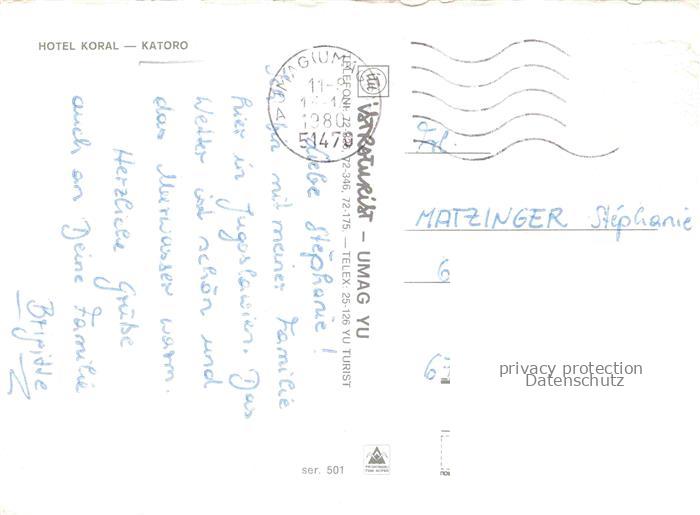 HOTEL KORAL — KATORO
Liebe Stéphanie!
Ich bin mit meiner Familie
hier in Jugoslawien. Das
Wetter ist schön und
das Meerwasser warm.
Herzliche Grüße
auch an Deine Familie
Brigitte
ISTRATURIST – UMAG YU
72-346, 72-175. — TELEX: 25-126 YU TURIST
1980
51470
MATZINGER Stéphanie
6
privacy protection
Datenschutz
ser. 501